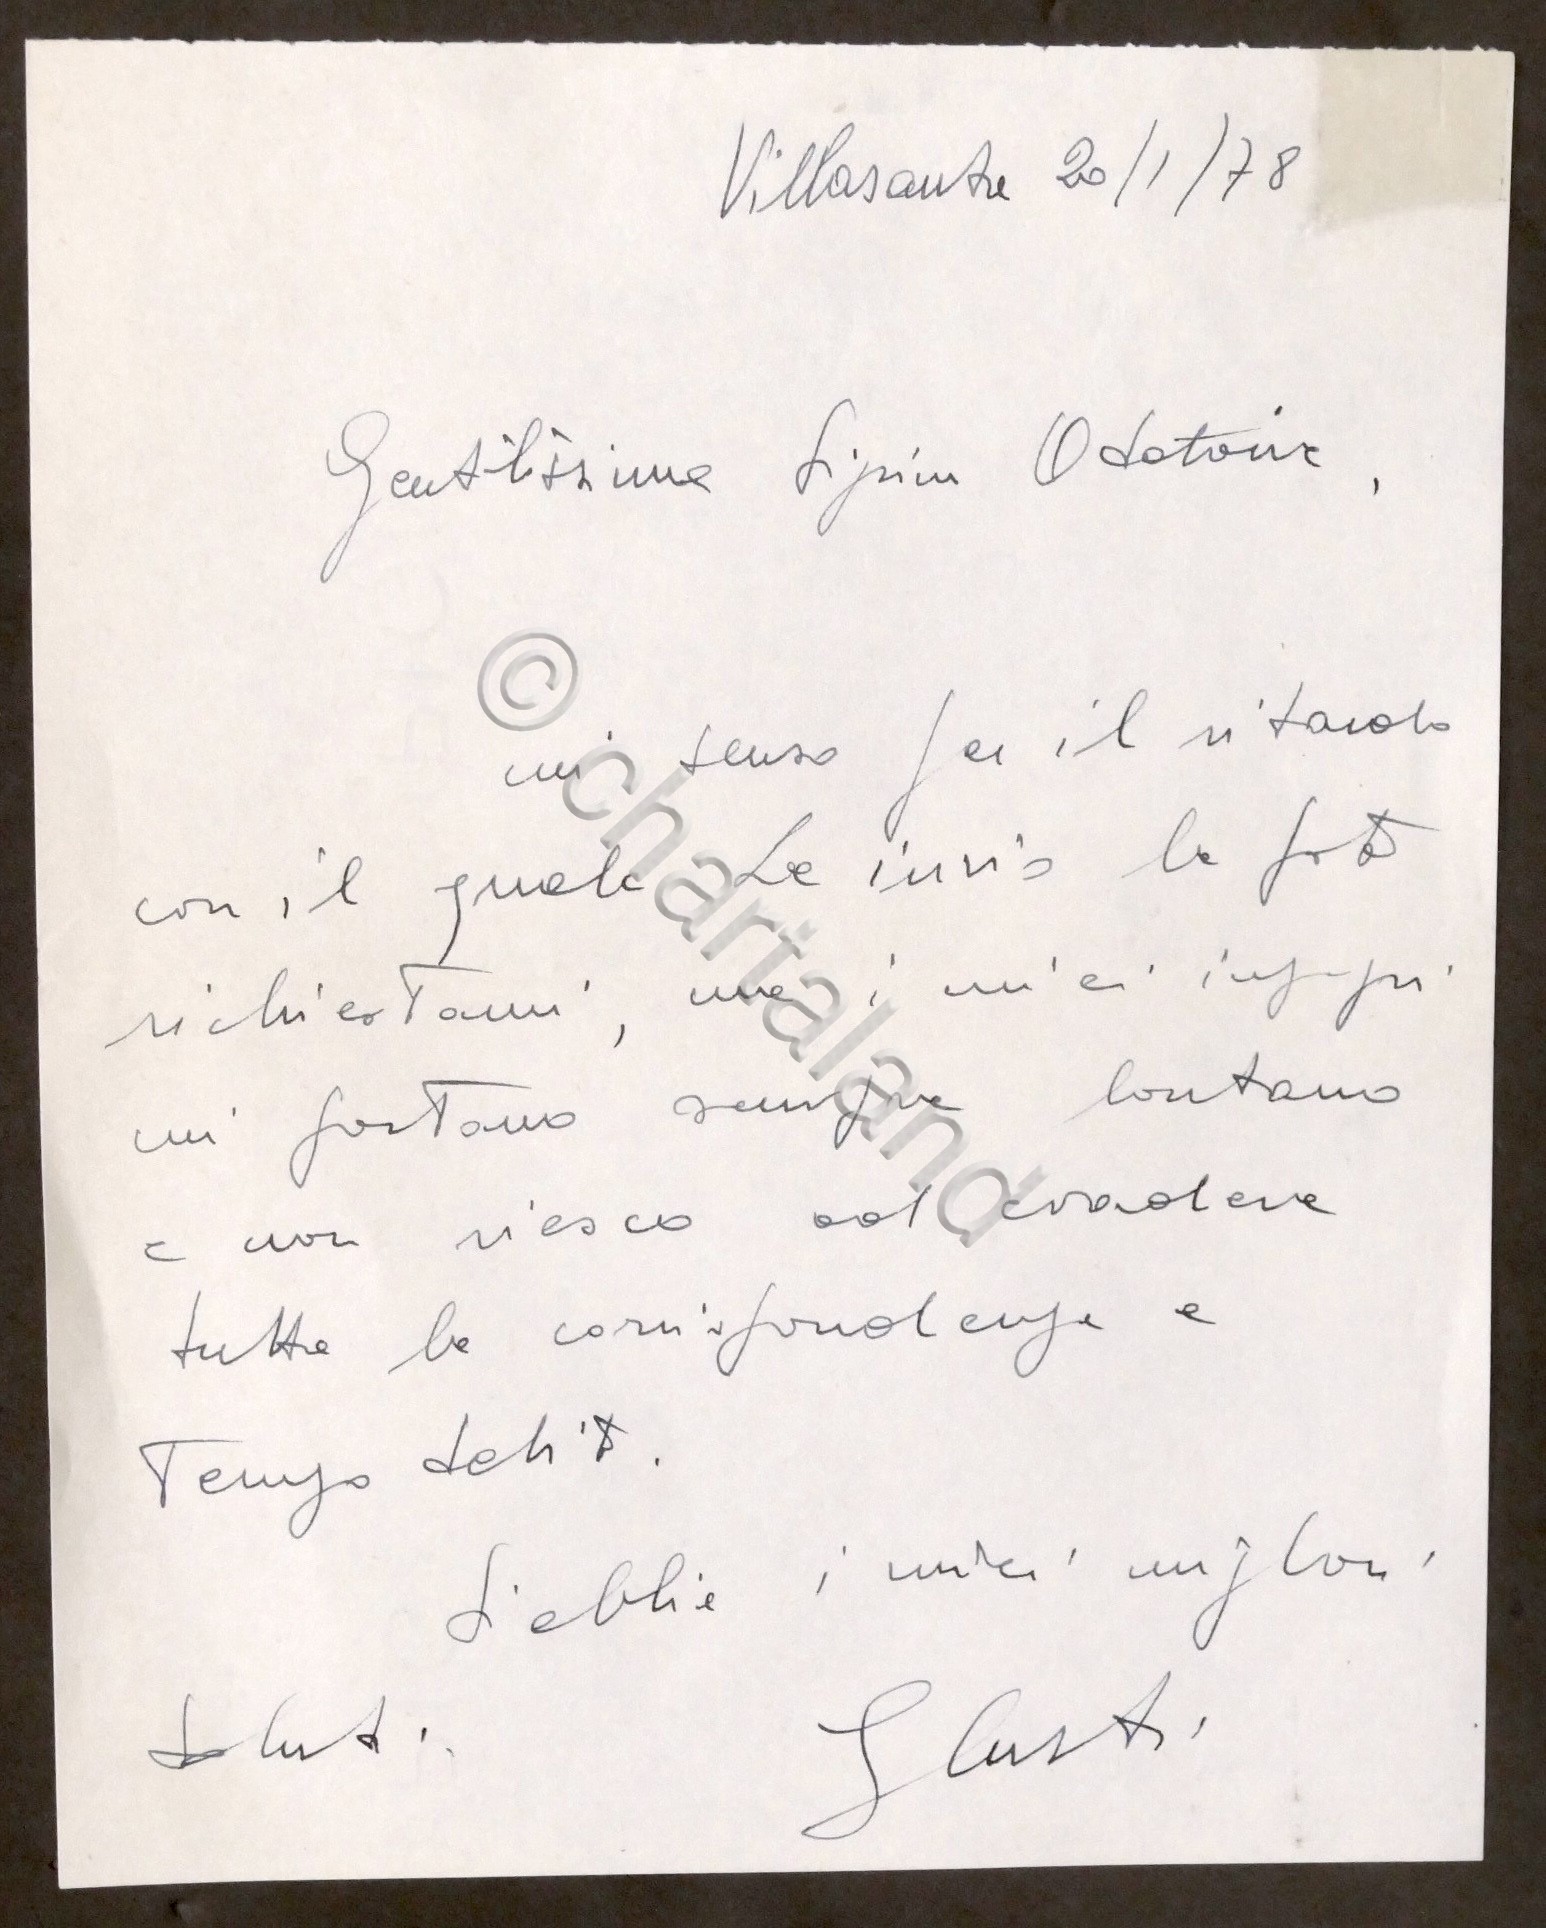 Villasanta 20/1/78
Gentilissima Sig.rina
mi scuso per il ritardo
con il quale Le invio la foto
richiestami, ma i miei impegni
mi portano sempre lontano
e non riesco ad evadere
tutta la corrispondenza a
tempo debito.
Si abbia i miei migliori
saluti.
© chartaland